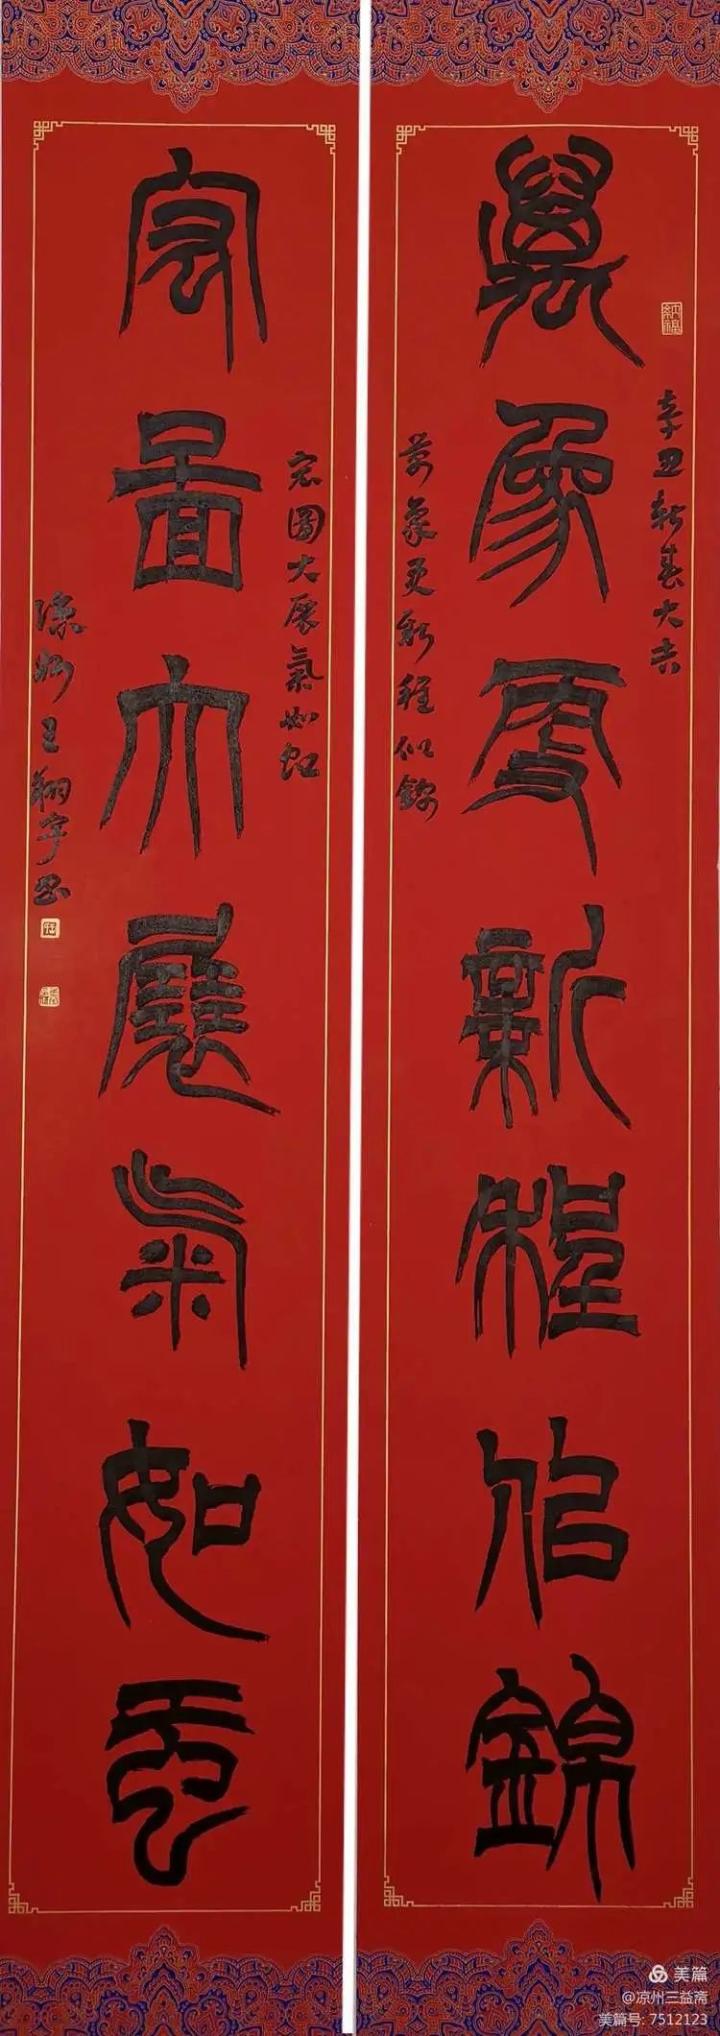 辛丑新春大吉
萬象更新程似錦
万象更新程似錦
宏圖大展氣如虹
宏圖大展氣如虹
王翔宇書
美篇
@凉州三益斋
美篇号: 7512123